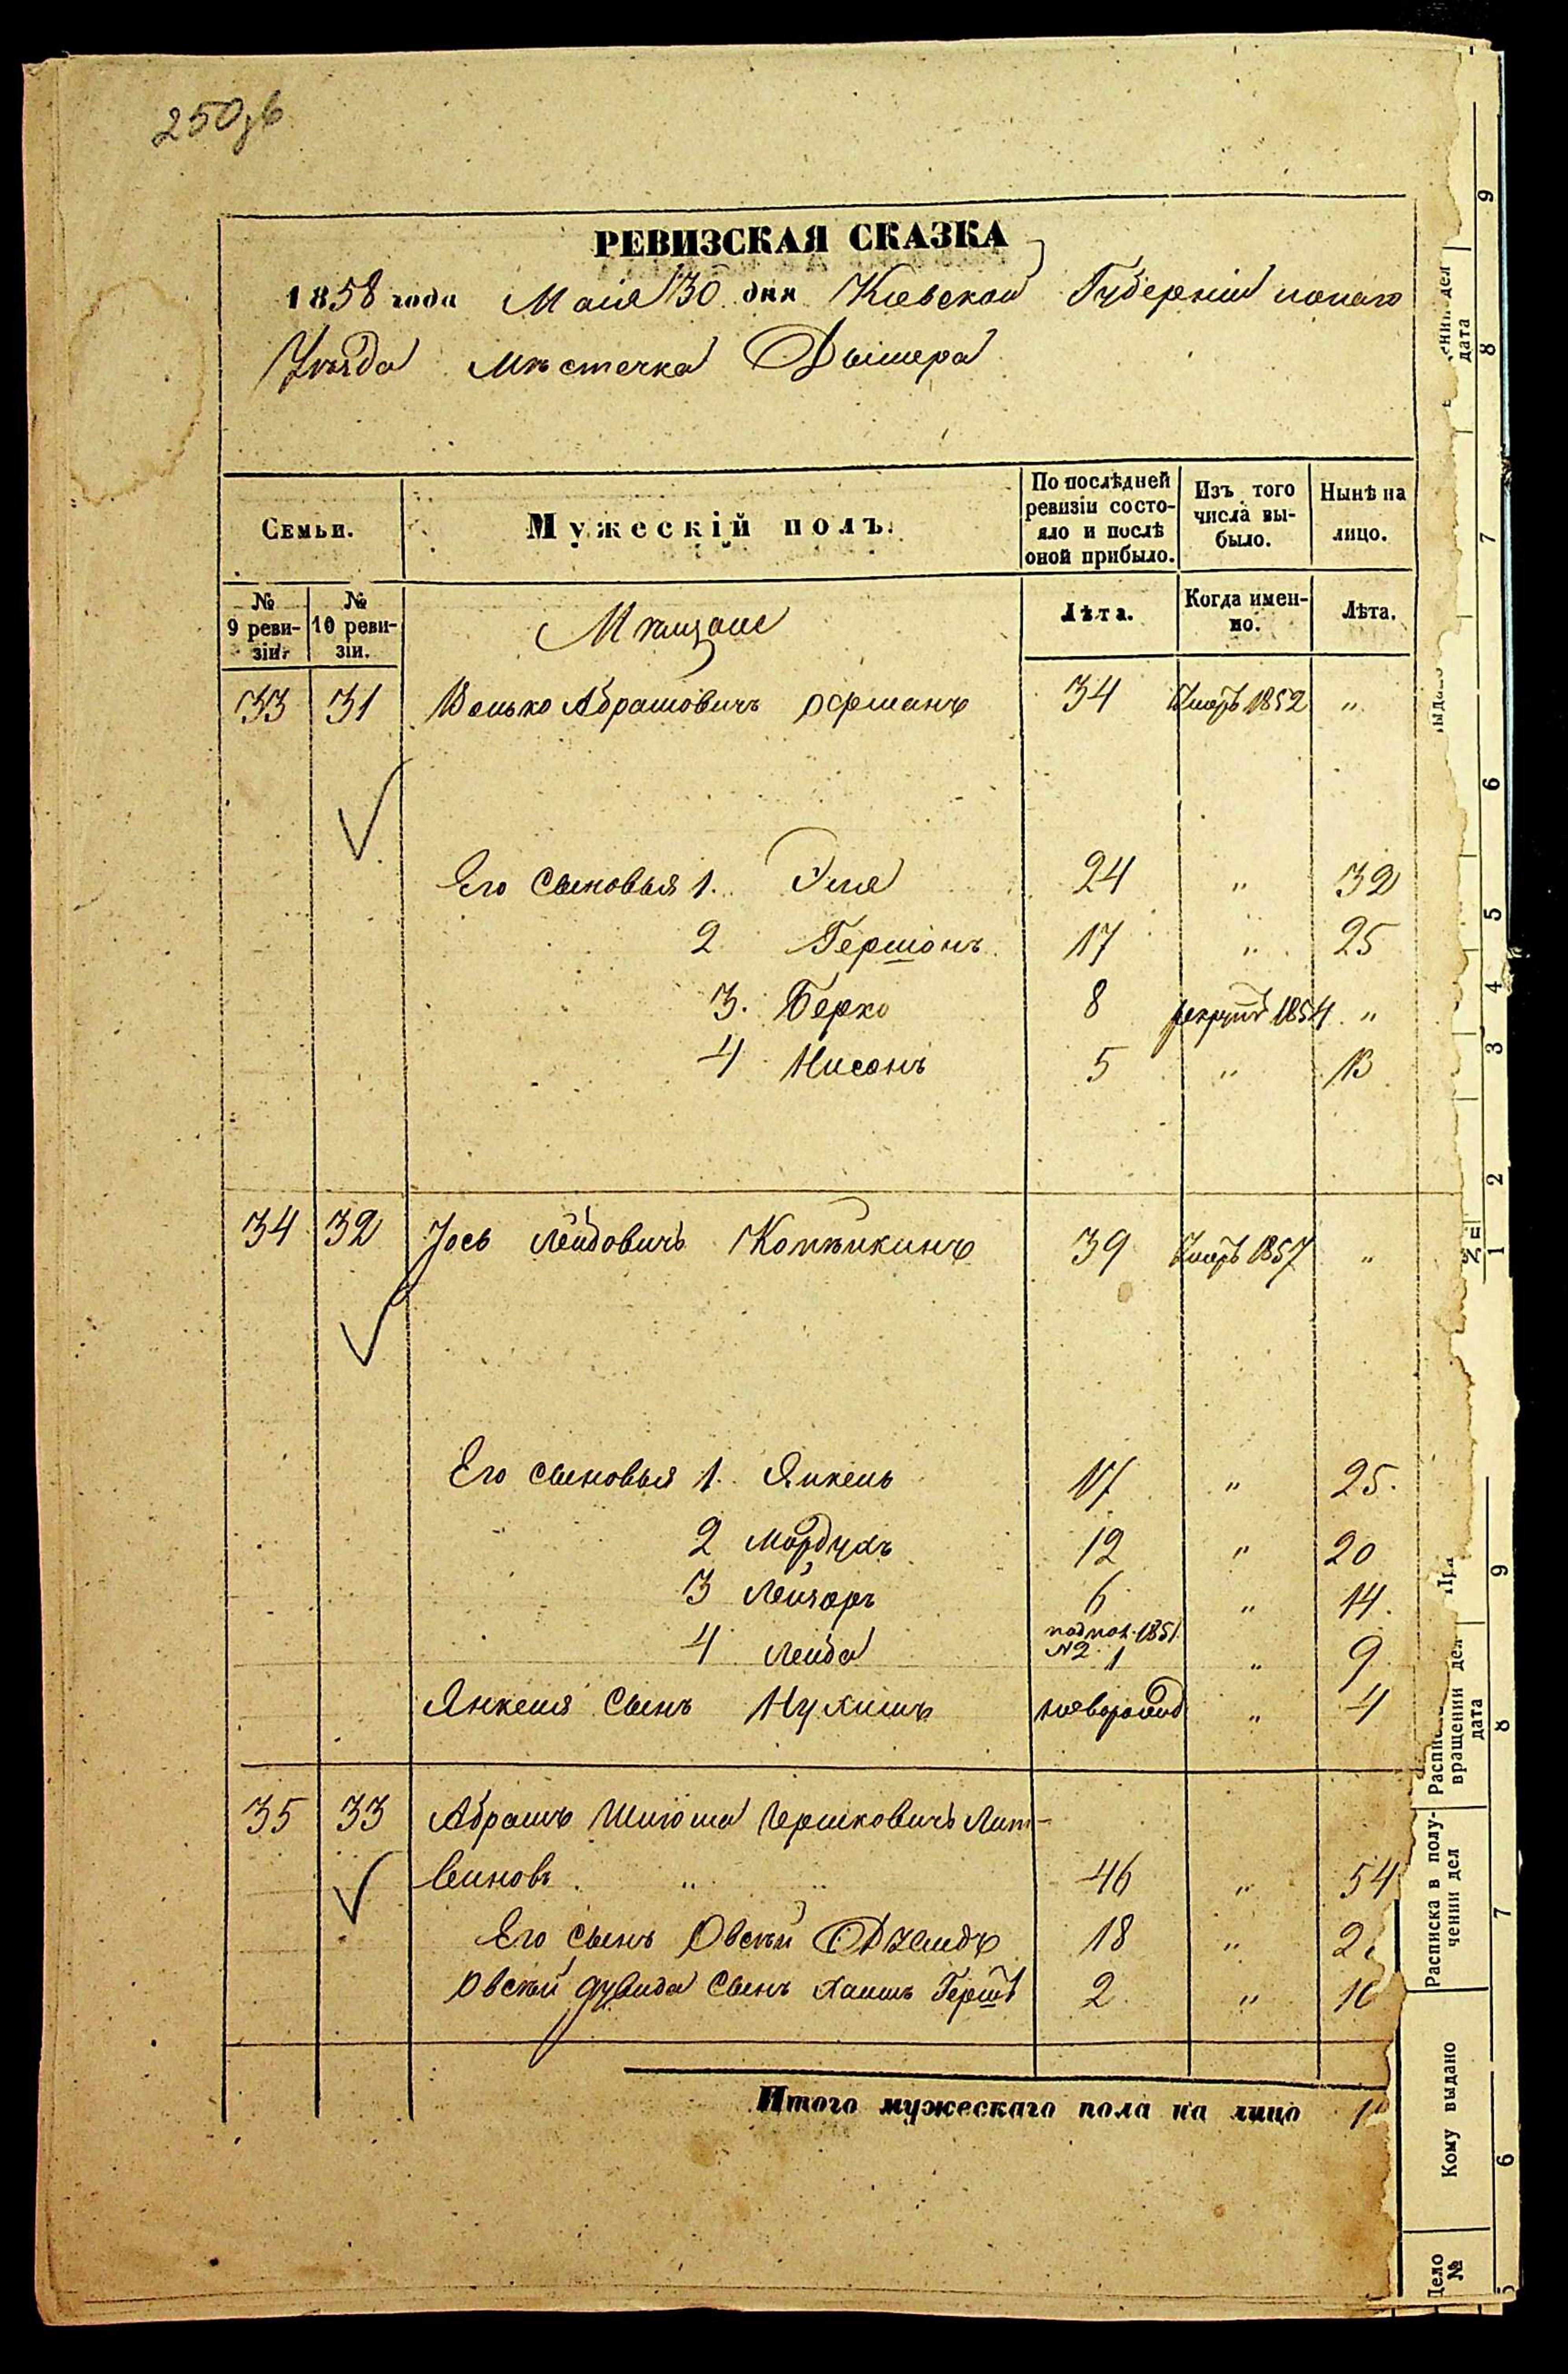 250
РЕВИЗСКАЯ СКАЗКА
1858 года Маія 30 дня Кіевской Губерніи
Уѣзда Мѣстечка Дымера
Семьи.
Мужескій полъ.
По послѣдней ревизіи состо-
яло и послѣ
оной прибыло.
Изъ того
числа вы-
было.
Нынѣ на
лицо.
№
9 реви-
зіи.
№
10 реви-
зіи.
Мѣщане
Лѣта.
Когда имен-
но.
Лѣта.
33 31 Волько Абрамовичъ 34 Умеръ 1852 "
Его сыновья 1. Эля 24 " 32
2 Гершонъ 17 " 25
3. Берко 8 рекрутъ 1854 "
4 Нисонъ 5 " 13
34 32 Іось Лейбовичъ 39 Умеръ 1857 "
Его сыновья 1. Янкель 17 " 25.
2 Мордухъ 12 " 20
3 Лейзоръ 6 " 14.
1851
№2
4 Лейба 1 " 9
Янкеля сынъ Нухимъ новорожд " 4
35 33 Абрамъ Шлiома Гершковичъ Лит-
виновъ " " 46 " 54
Его сынъ Овсѣй 18 "
Овсѣй Дувида сынъ Хаимъ Гершъ 2 "
Итого мужескаго пола на лицо
дата
Расписка в полу-
чении дел
вращении дел
дата
Кому выдано
Дело
№
9
8
7
6
5
4
3
2
1
9
8
7
6
5